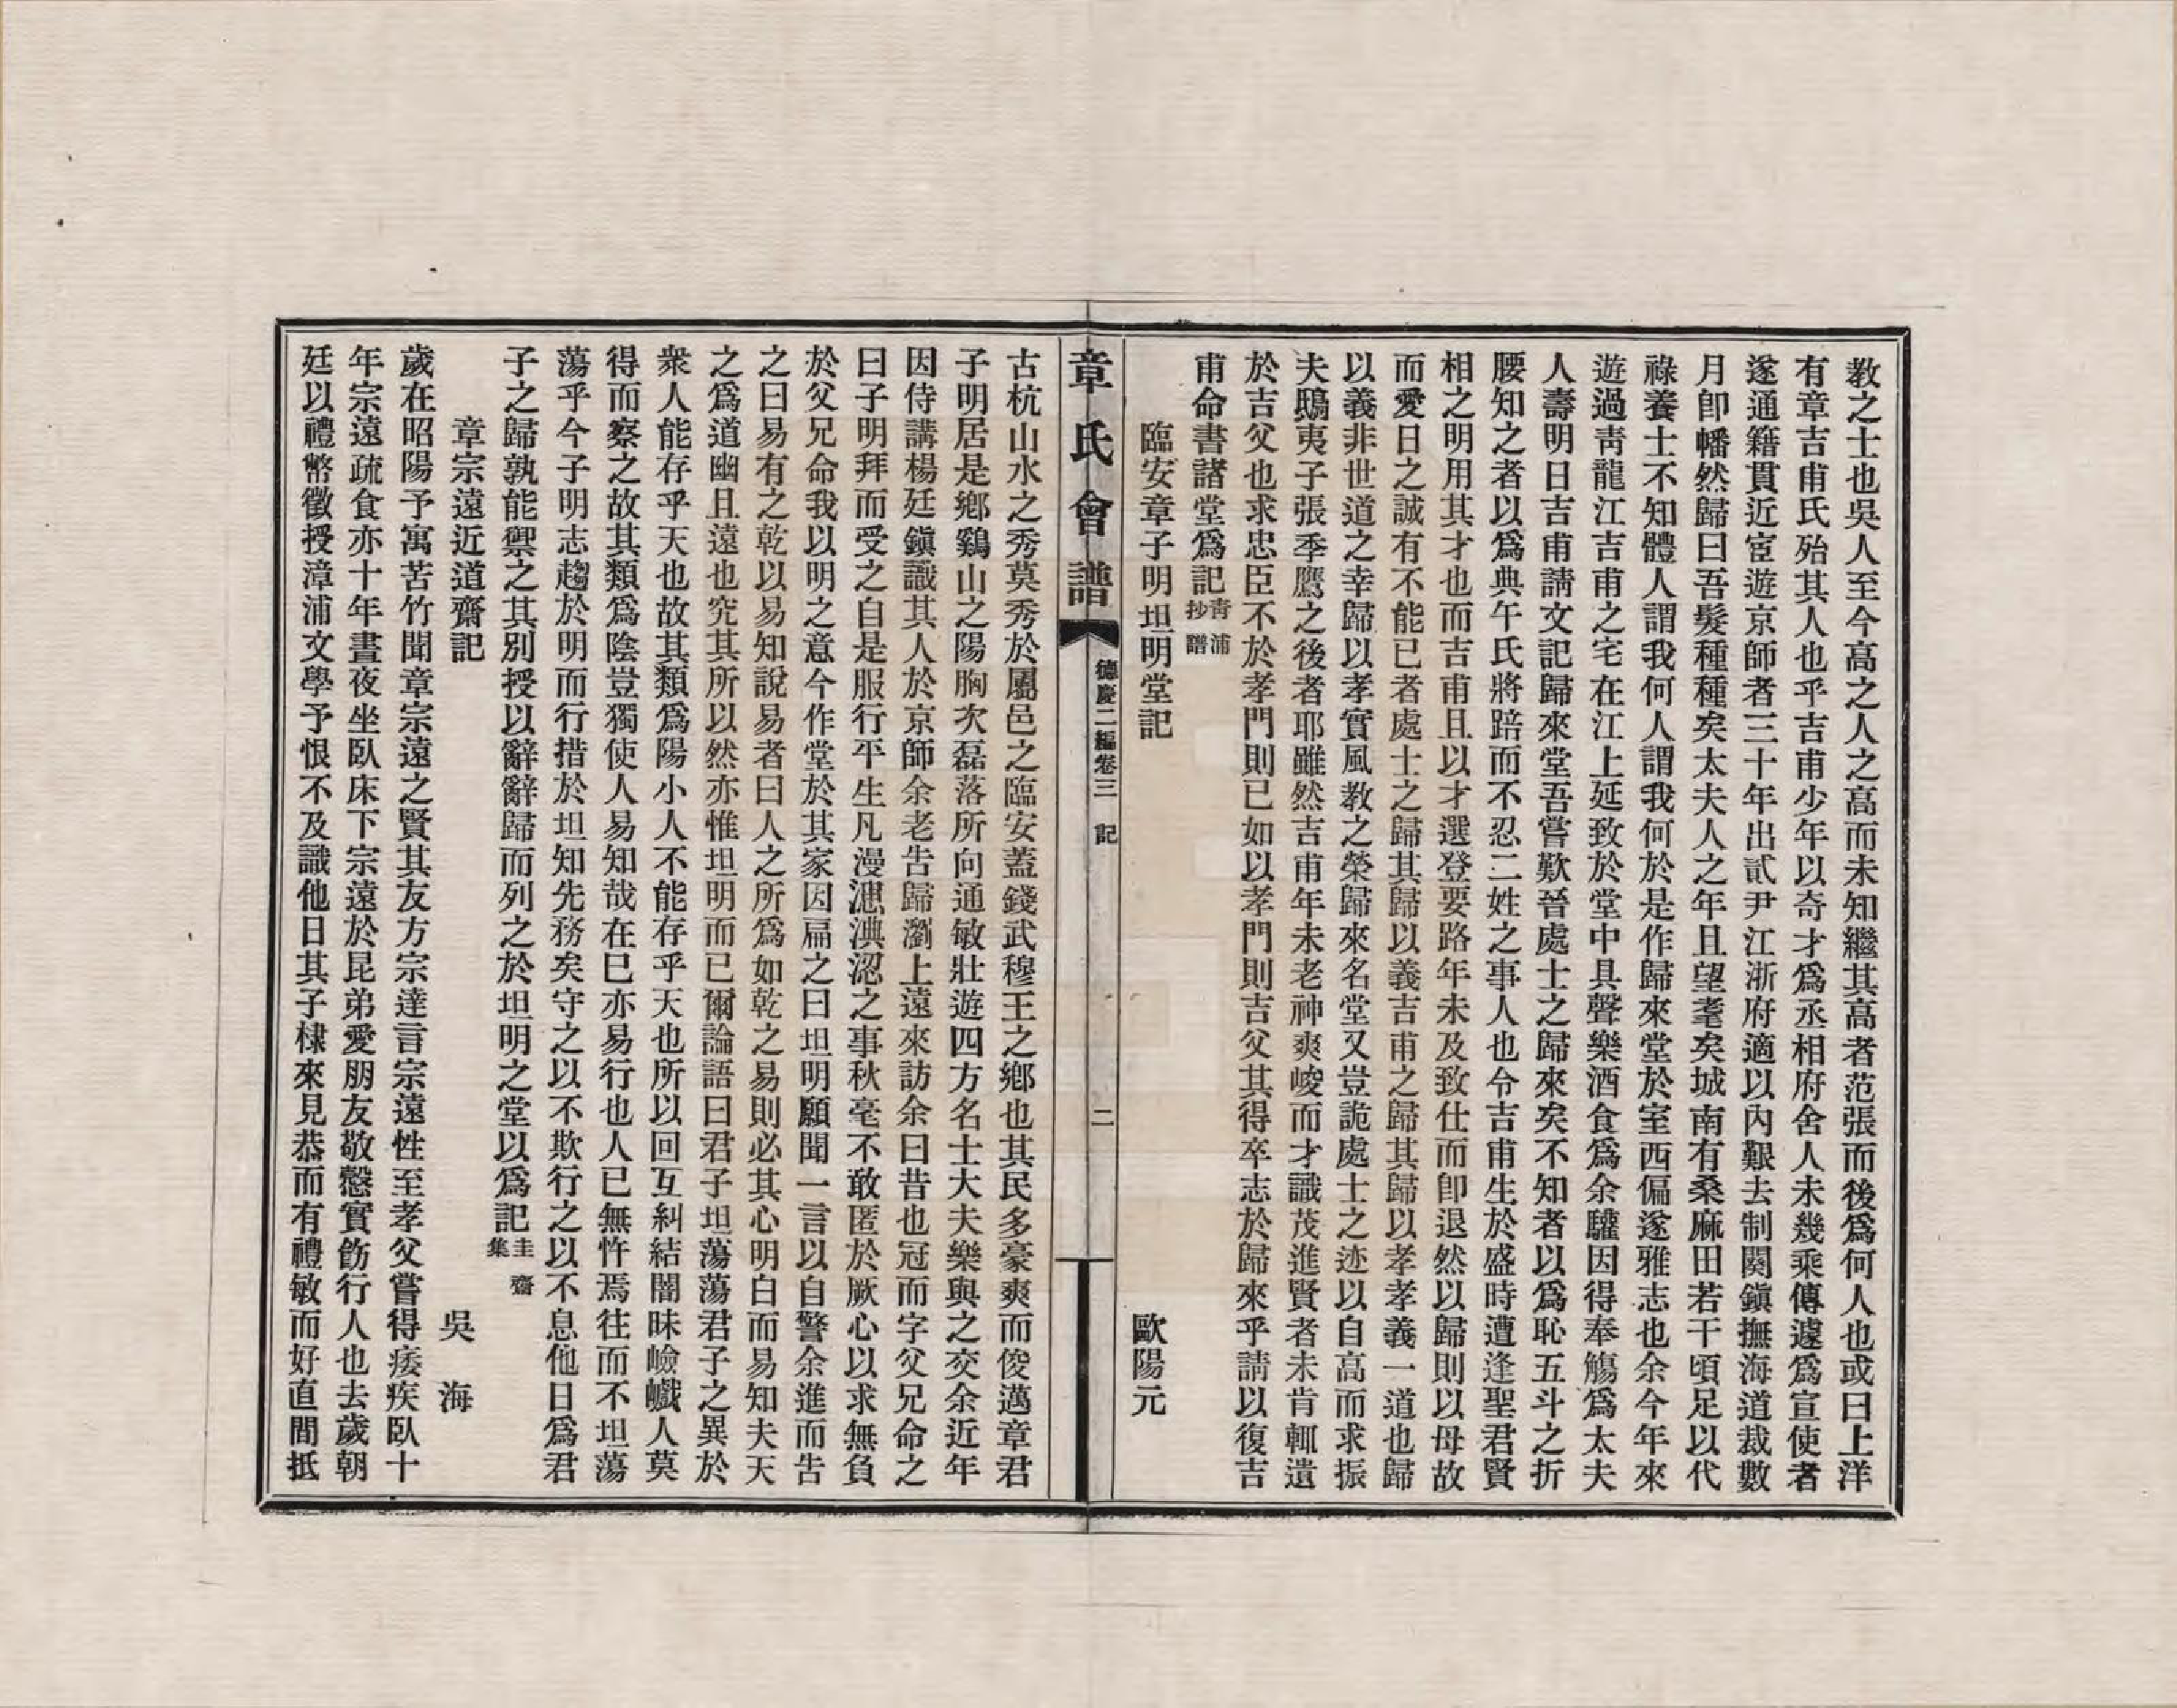 教之士也吳人至今高之人之高而未知繼其高者范張而後爲何人也或曰上洋
有章吉甫氏殆其人也乎吉甫少年以奇才爲丞相府舍人未幾乘傳遽爲宣使者
遂通籍貫近宦遊京師者三十年出貳尹江浙府適以內艱去制閫鎭撫海道裁數
月卽幡然歸曰吾髮種種矣太夫人之年且望耄矣城南有桑麻田若干頃足以代
祿養士不知體人謂我何人謂我何於是作歸來堂於室西偏遂雅志也余今年來
遊過靑龍江吉甫之宅在江上延致於堂中具聲樂酒食爲余驩因得奉觴爲太夫
人壽明日吉甫請文記歸來堂吾嘗歎晉處士之歸來矣不知者以爲恥五斗之折
腰知之者以爲典午氏將踣而不忍二姓之事人也令吉甫生於盛時遭逢聖君賢
相之明用其才也而吉甫且以才選登要路年未及致仕而卽退然以歸則以母故
而愛日之誠有不能已者處士之歸其歸以義吉甫之歸其歸以孝孝義一道也歸
以義非世道之幸歸以孝實風教之榮歸來名堂又豈詭處士之迹以自高而求振
夫鴟夷子張季鷹之後者耶雖然吉甫年未老神爽峻而才識茂進賢者未肯輒遺
於吉父也求忠臣不於孝門則已如以孝門則吉父其得卒志於歸來乎請以復吉
甫命書諸堂爲記靑浦抄譜
臨安章子明坦明堂記 歐陽元
章氏會譜 德慶二編卷三 記 二
古杭山水之秀莫秀於屬邑之臨安蓋錢武穆王之鄉也其民多豪爽而俊邁章君
子明居是鄉鷄山之陽胸次磊落所向通敏壯遊四方名士大夫樂與之交余近年
因侍講楊廷鎭識其人於京師余老告歸瀏上遠來訪余曰昔也冠而字父兄命之
曰子明拜而受之自是服行平生凡漫漶淟涊之事秋毫不敢匿於厥心以求無負
於父兄命我以明之意今作堂於其家因扁之曰坦明願聞一言以自警余進而告
之曰易有之乾以易知說易者曰人之所爲如乾之易則必其心明白而易知夫天
之爲道幽且遠也究其所以然亦惟坦明而已爾論語曰君子坦蕩蕩君子之異於
衆人能存乎天也故其類爲陽小人不能存乎天也所以回互糾結闇昧嶮巇人莫
得而察之故其類爲陰豈獨使人易知哉在已亦易行也人已無忤焉往而不坦蕩
蕩乎今子明志趨於明而行措於坦知先務矣守之以不欺行之以不息他日爲君
子之歸孰能禦之其別授以辭辭歸而列之於坦明之堂以爲記圭齋集
章宗遠近道齋記 吳海
歲在昭陽予寓苦竹聞章宗遠之賢其友方宗達言宗遠性至孝父嘗得痿疾臥十
年宗遠疏食亦十年晝夜坐臥床下宗遠於昆弟愛朋友敬慤實飭行人也去歲朝
廷以禮幣徵授漳浦文學予恨不及識他日其子棣來見恭而有禮敏而好直間抵